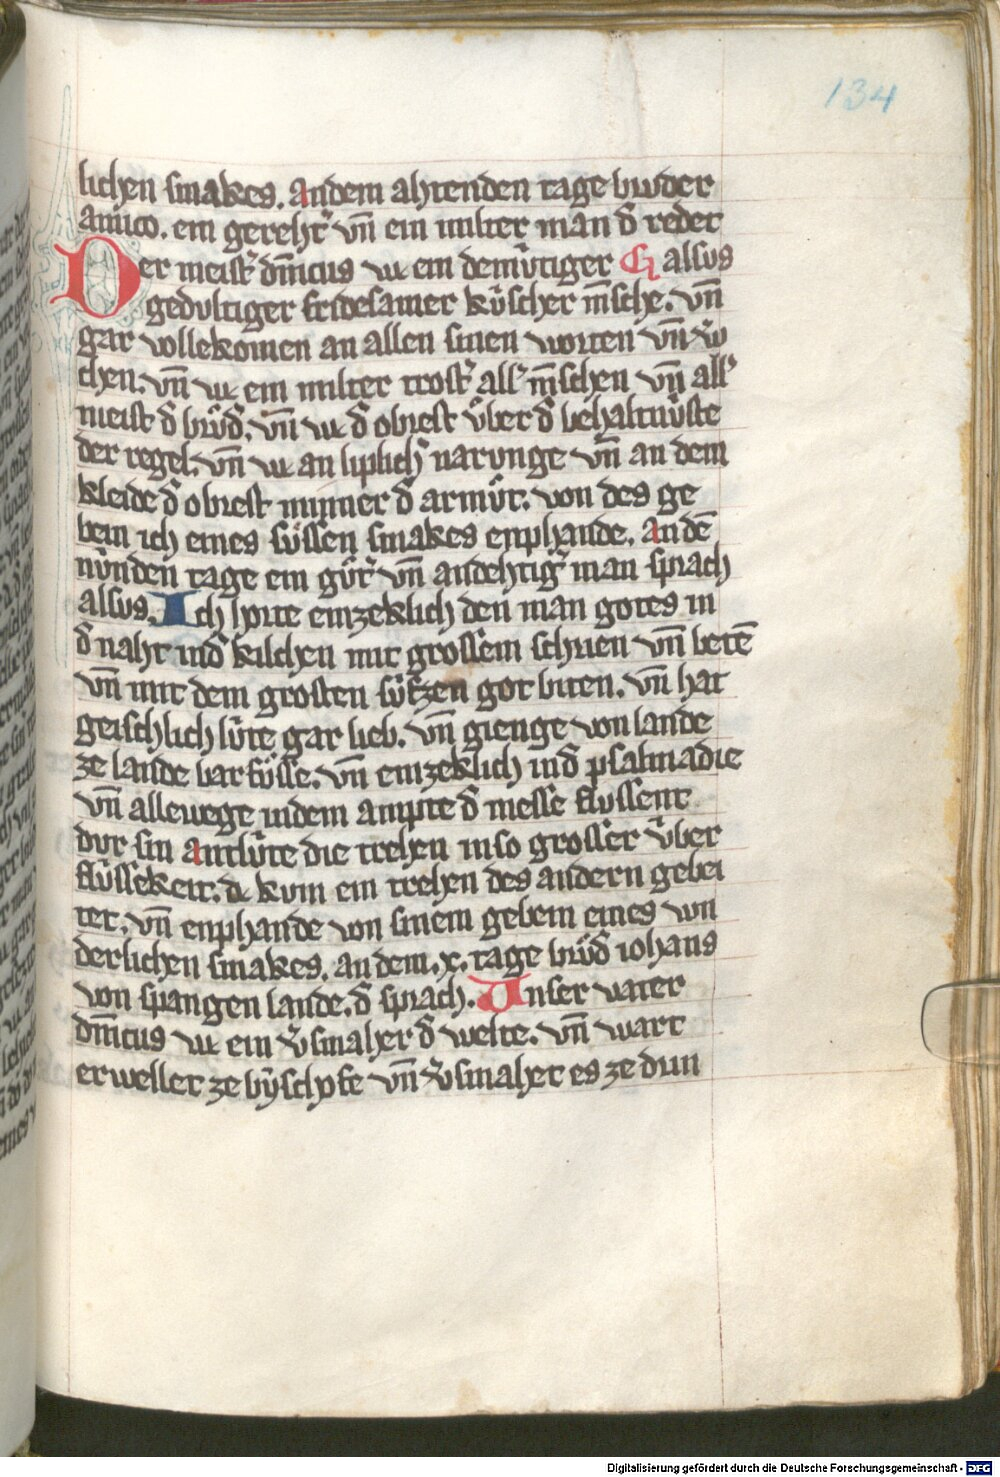 134
lichen smakes. an dem ahtenden tage bruder
amico. ein gereht͛ vn̄ ein milter man d͛ redet
Der meist͛ dn̄icus wc ein demu̍tiger alsvs
gedvltiger fridesamer ku̍scher m̄sche. vn̄
gar vollekomen an allen sinen worten vn̄ w͛
chen. vn̄ wc ein milter trost͛ all͛ m̄schen vn̄ all͛
meist d͛ bru̍d͛. vn̄ wc d͛ obrest u̍ber d͛ behaltnu̍ste
der regel. vn̄ wc an liplich͛ narvnge vn̄ an dem
kleide d͛ obrest minner d͛ armu̍t. von des ge
bein ich eines su̍ssen smakes enphande. an dē
nu̍nden tage ein gu̍t͛ vn̄ andehtig͛ man sprach
alsvs. Ich horte emzeklich den man gotes in
d͛ naht in d͛ kilchen mit grossem schrien vn̄ betē
vn̄ mit dem grosten su̍fzen got biten. vn̄ hat
geischlich lu̍te gar lieb. vn̄ gienge von lande
ze lande barfu̍sse. vn̄ emzeklich in d͛ psalmadie
vn̄ allewege in dem ampte d͛ messe flvssent
dvr sin antlu̍te die trehen in so grosser u̍ber
flu̍ssekeit. dc kvm ein trehen des andern gebei
tet. vn̄ enphande von sinem gebein eines wn
derlichen smakes. an dem .x. tage bru̍d͛ iohans
von spangen lande. d͛ sprach. Unser vater
dn̄icus wc ein v͛smaher d͛ welte. vn̄ wart
erwellet ze byschofe vn̄ v͛smahet es ze dun
Digitalisierung gefördert durch die Deutsche Forschungsgemeinschaft - DFG